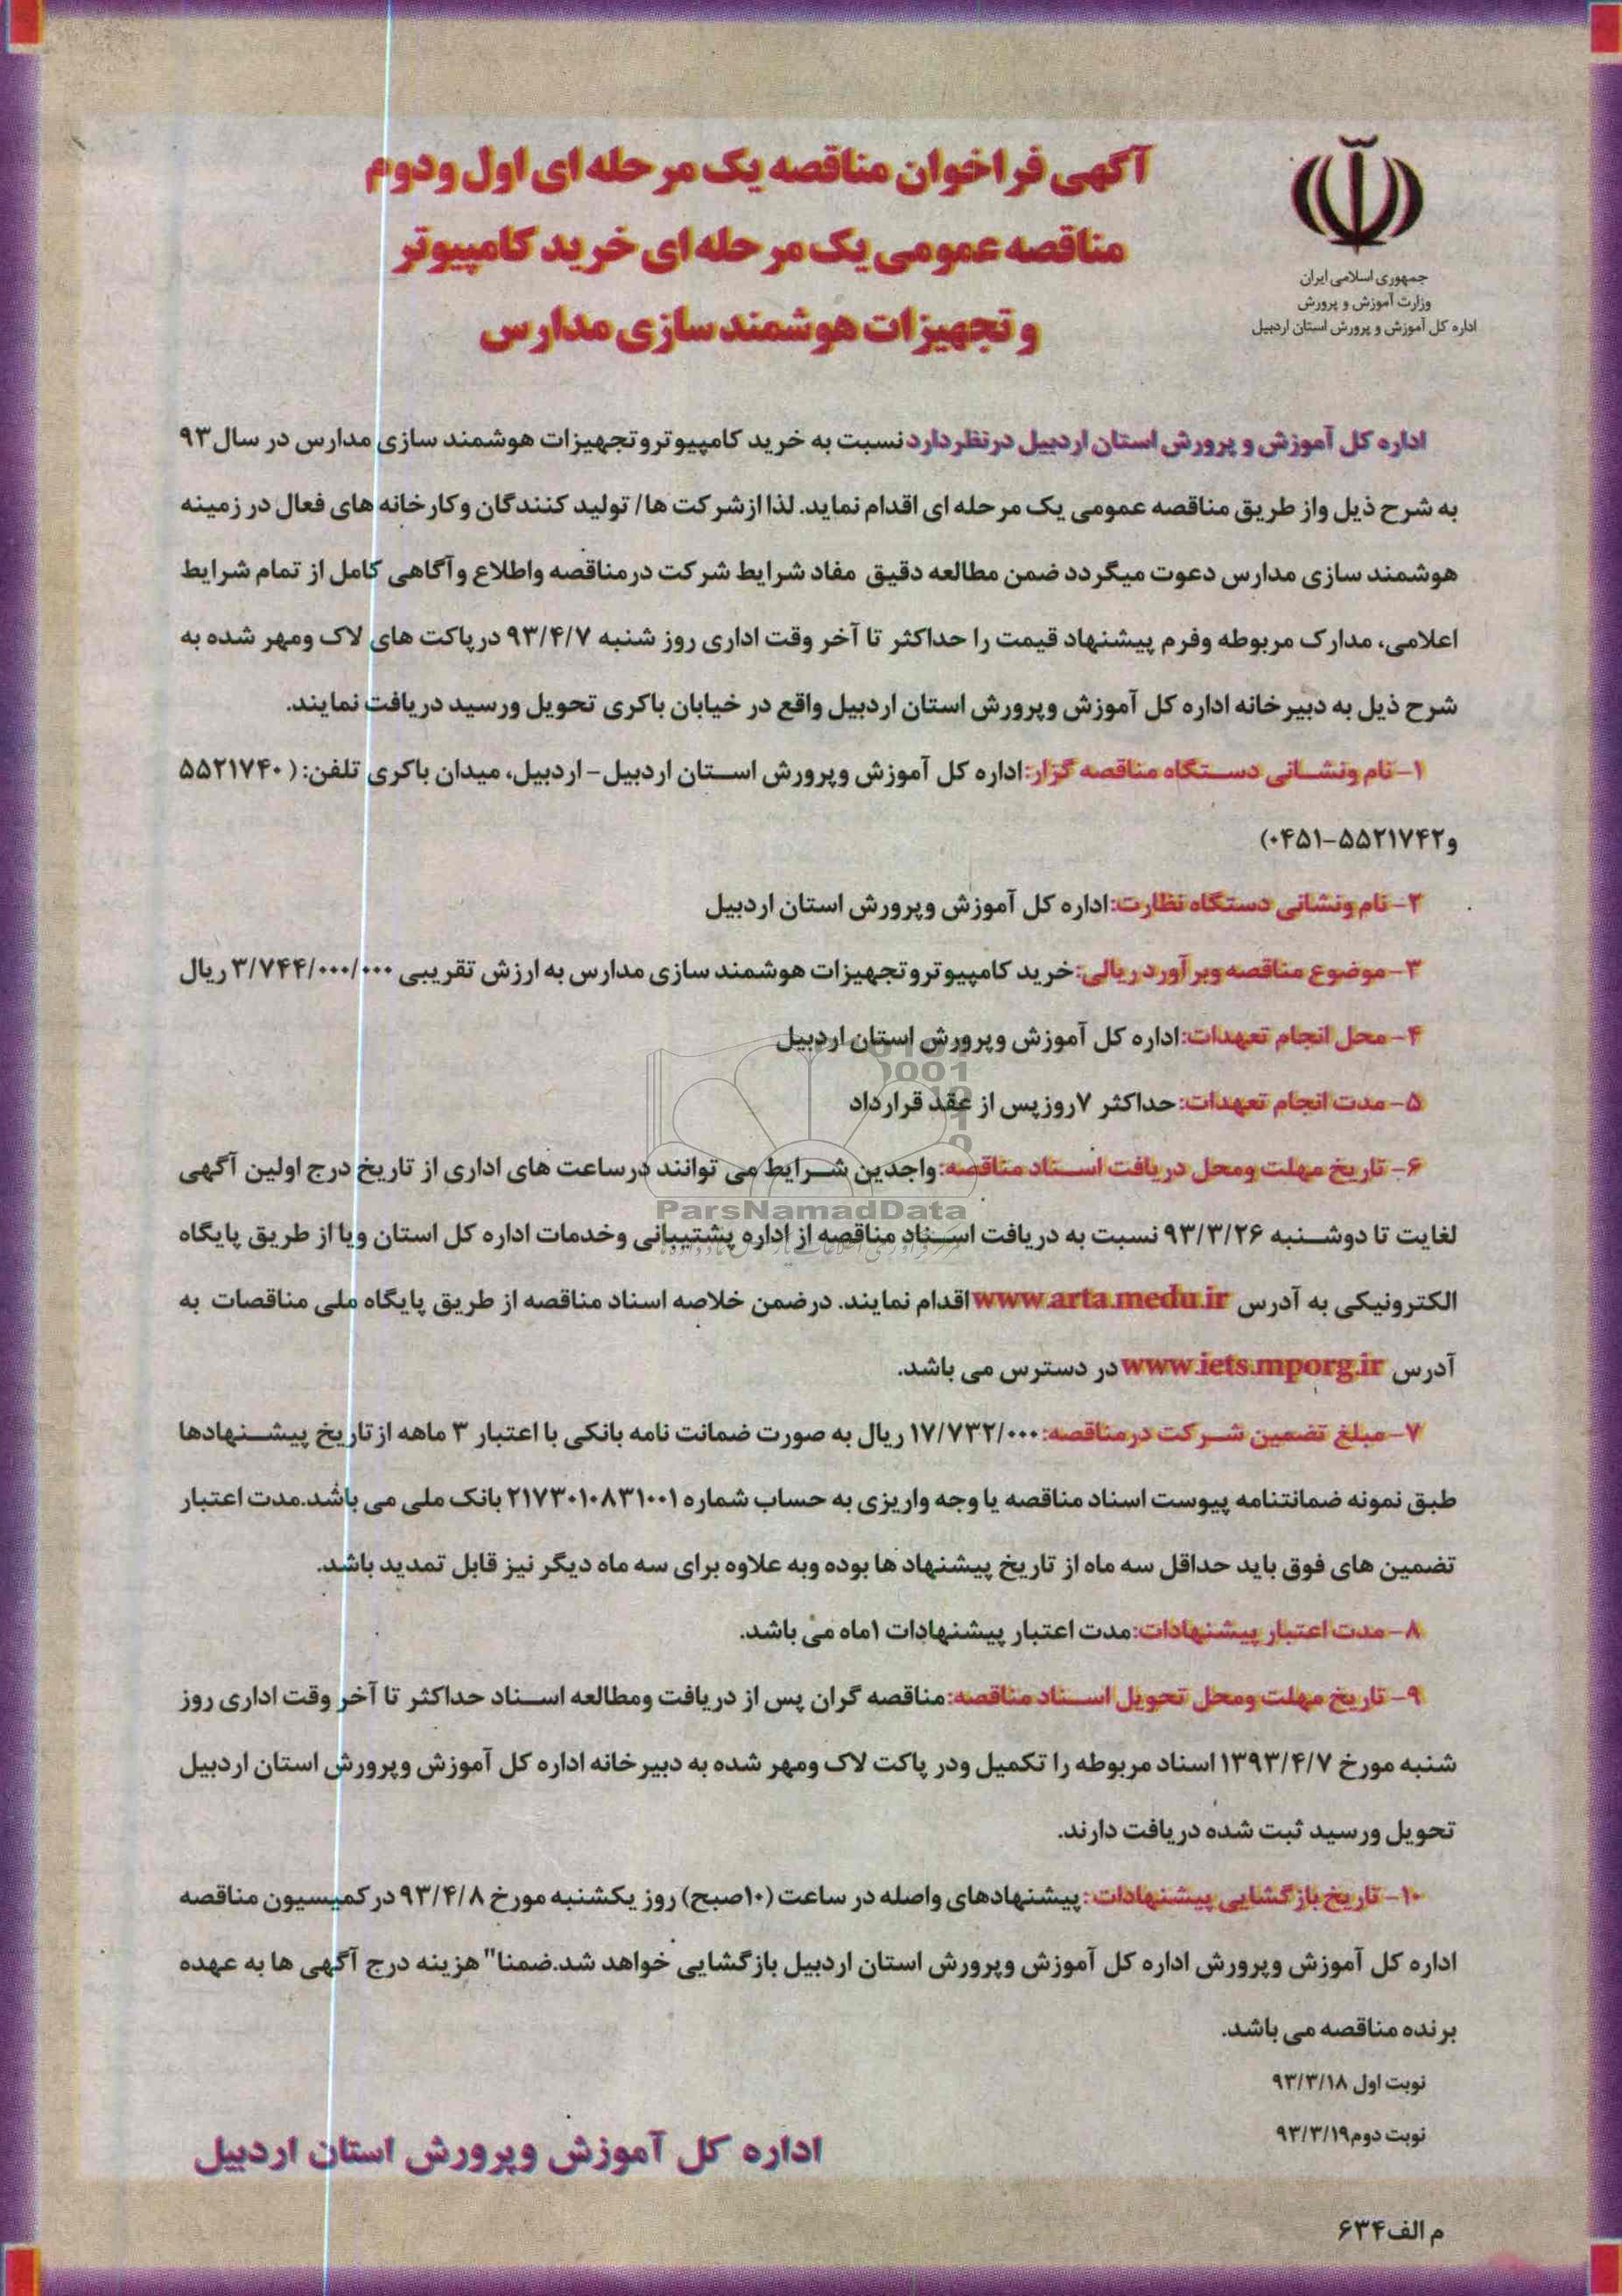 جمهوری اسلامی ایران
وزارت آموزش و پرورش
اداره کل آموزش و پرورش استان اردبیل
آگهی فراخوان مناقصه یک مرحله ای اول و دوم
مناقصه عمومی یک مرحله ای خرید کامپیوتر
و تجهیزات هوشمند سازی مدارس
اداره کل آموزش و پرورش استان اردبیل درنظر دارد نسبت به خرید کامپیوتر و تجهیزات هوشمند سازی مدارس در سال ۹۳
به شرح ذیل واز طریق مناقصه عمومی یک مرحله ای اقدام نماید. لذا ازشرکت ها/ تولید کنندگان وکارخانه های فعال در زمینه
هوشمند سازی مدارس دعوت میگردد ضمن مطالعه دقیق مفاد شرایط شرکت درمناقصه واطلاع وآگاهی کامل از تمام شرایط
اعلامی، مدارک مربوطه وفرم پیشنهاد قیمت را حداکثر تا آخر وقت اداری روز شنبه ۹۳/۴/۷ درپاکت های لاک ومهر شده به
شرح ذیل به دبیرخانه اداره کل آموزش وپرورش استان اردبیل واقع در خیابان باکری تحویل ورسید دریافت نمایند.
۱- نام ونشانی دستگاه مناقصه گزار: اداره کل آموزش وپرورش استان اردبیل- اردبیل، میدان باکری تلفن: ( ۵۵۲۱۷۴۰
و ۵۵۲۱۷۴۲-۰۴۵۱)
۲- نام ونشانی دستگاه نظارت: اداره کل آموزش وپرورش استان اردبیل
۳- موضوع مناقصه وبرآورد ریالی: خرید کامپیوتر و تجهیزات هوشمند سازی مدارس به ارزش تقریبی ۳/۷۴۴/۰۰۰/۰۰۰ ریال
۴- محل انجام تعهدات: اداره کل آموزش وپرورش استان اردبیل
۵- مدت انجام تعهدات: حداکثر ۷روز پس از عقد قرارداد
۶- تاریخ مهلت ومحل دریافت اسناد مناقصه: واجدین شرایط می توانند درساعت های اداری از تاریخ درج اولین آگهی
ParsNamadData
لغایت تا دوشنبه ۹۳/۳/۲۶ نسبت به دریافت اسناد مناقصه از اداره پشتیبانی وخدمات اداره کل استان ویا از طریق پایگاه
الکترونیکی به آدرس www.arta.medu.ir اقدام نمایند. درضمن خلاصه اسناد مناقصه از طریق پایگاه ملی مناقصات به
آدرس www.iets.mporg.ir در دسترس می باشد.
۷- مبلغ تضمین شرکت درمناقصه: ۱۷/۷۳۲/۰۰۰ ریال به صورت ضمانت نامه بانکی با اعتبار ۳ ماهه ازتاریخ پیشنهادها
طبق نمونه ضمانتنامه پیوست اسناد مناقصه یا وجه واریزی به حساب شماره ۲۱۷۳۰۱۰۸۳۱۰۰۱ بانک ملی می باشد.مدت اعتبار
تضمین های فوق باید حداقل سه ماه از تاریخ پیشنهاد ها بوده وبه علاوه برای سه ماه دیگر نیز قابل تمدید باشد.
۸- مدت اعتبار پیشنهادات: مدت اعتبار پیشنهادات ۱ماه می باشد.
۹- تاریخ مهلت ومحل تحویل اسناد مناقصه: مناقصه گران پس از دریافت ومطالعه اسناد حداکثر تا آخر وقت اداری روز
شنبه مورخ ۱۳۹۳/۴/۷ اسناد مربوطه را تکمیل ودر پاکت لاک ومهر شده به دبیرخانه اداره کل آموزش وپرورش استان اردبیل
تحویل ورسید ثبت شده دریافت دارند.
۱۰- تاریخ بازگشایی پیشنهادات: پیشنهادهای واصله در ساعت (۱۰صبح) روز یکشنبه مورخ ۹۳/۴/۸ درکمیسیون مناقصه
اداره کل آموزش وپرورش اداره کل آموزش وپرورش استان اردبیل بازگشایی خواهد شد.ضمنا" هزینه درج آگهی ها به عهده
برنده مناقصه می باشد.
نوبت اول ۹۳/۳/۱۸
نوبت دوم۹۳/۳/۱۹
اداره کل آموزش وپرورش استان اردبیل
م الف۶۳۴